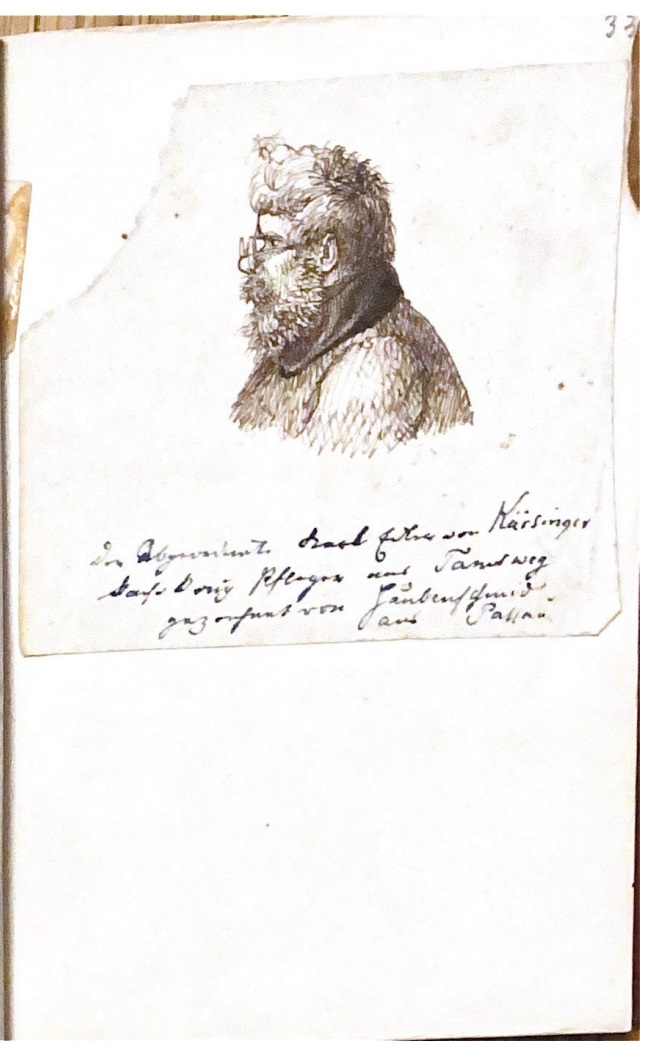 33
Der Abgeordnete Karl Ritter von Kürsinger
Pfleger aus Tamsweg
gezeichnet von Haubenschmid
aus Passau